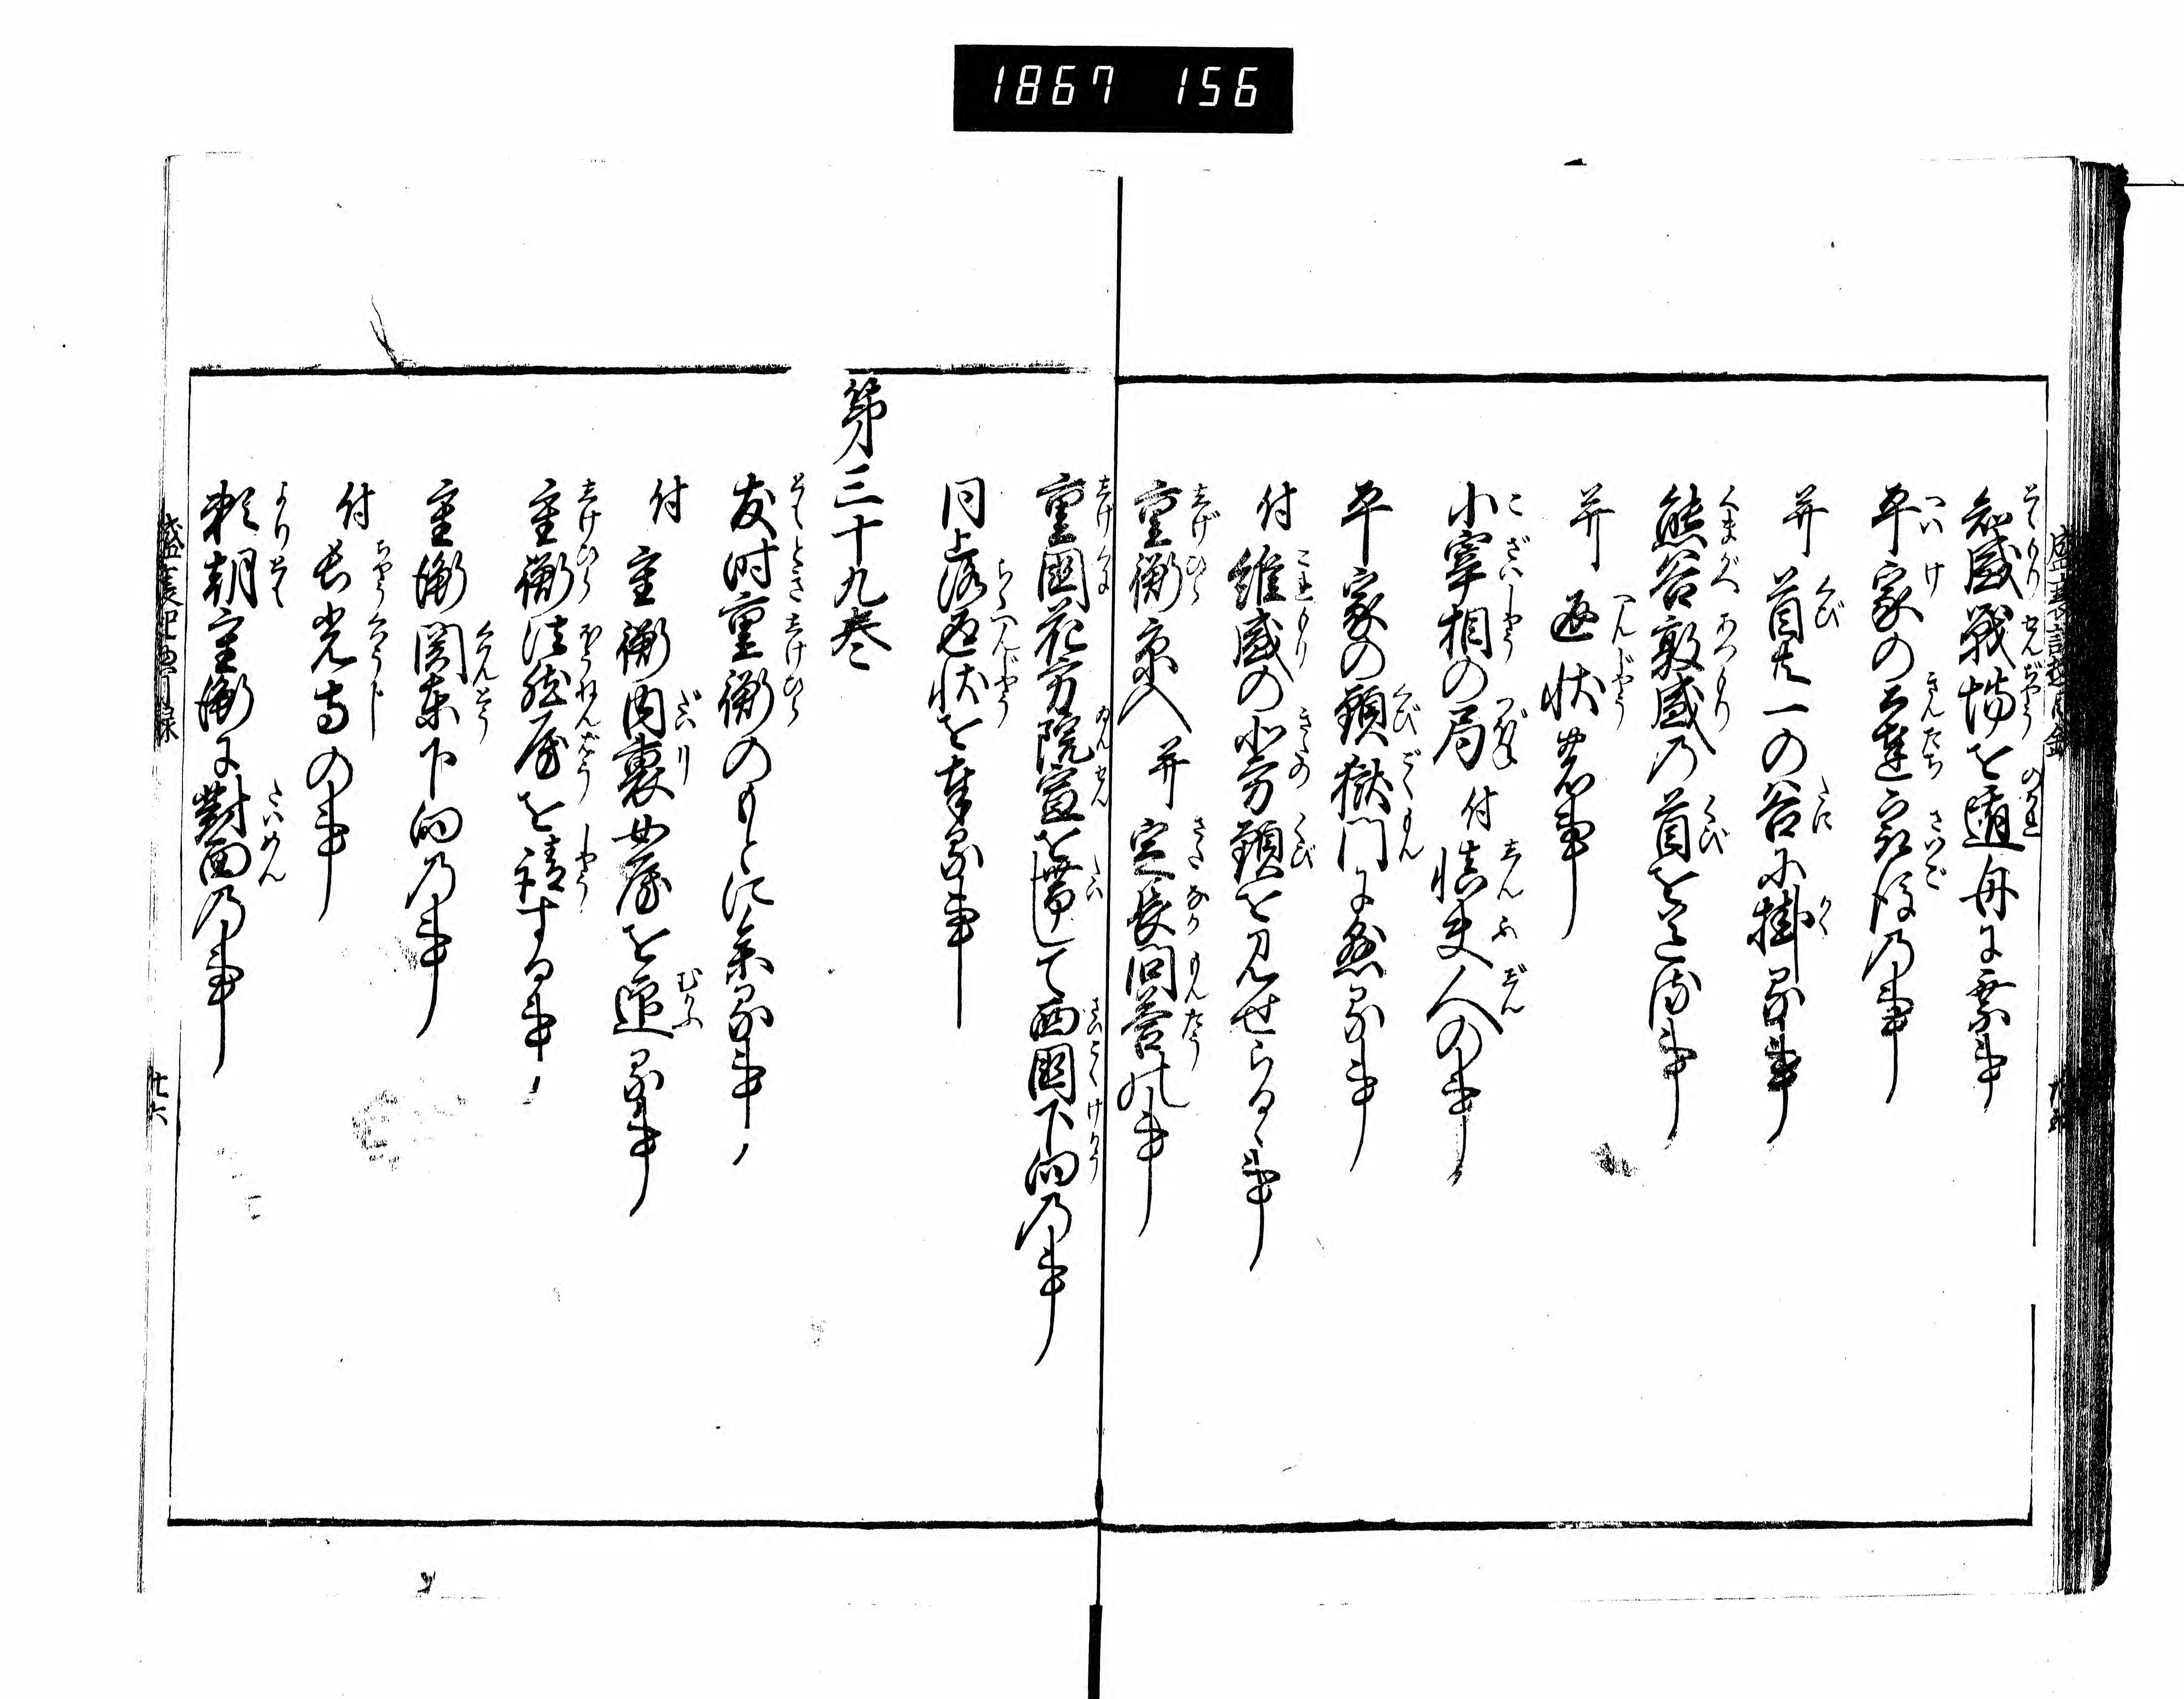 1867 156
盛衰記惣目録
知盛戦場を遁舟に乗事
平家の公達最後乃事
并 首共一の谷に掛る事
熊谷敦盛乃首を送る事
并 返状の事
小宰相の局 付 慎夫人の事
平家の頸獄門に懸る事
付 維盛の北方頸を見せらるゝ事
重衡京入 并 定長問答の事
重國花方院宣を帯して西國下向乃事
同上洛返状を奉る事
第三十九巻
友時重衡のもとに参る事
付 重衡内裏女房を迎る事
重衡法然房を請する事
重衡関東下向乃事
付 長光寺の事
頼朝重衡に對面乃事
盛衰記惣目録
廿六